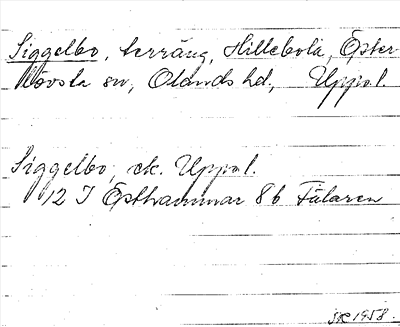 Siggelbo, terräng, Hillebola, Öster-
Lövsta sn, Olands hd., Uppl.
Siggelbo, ek. Uppl.
12 I Östhammar 8b Fälaren
1958.